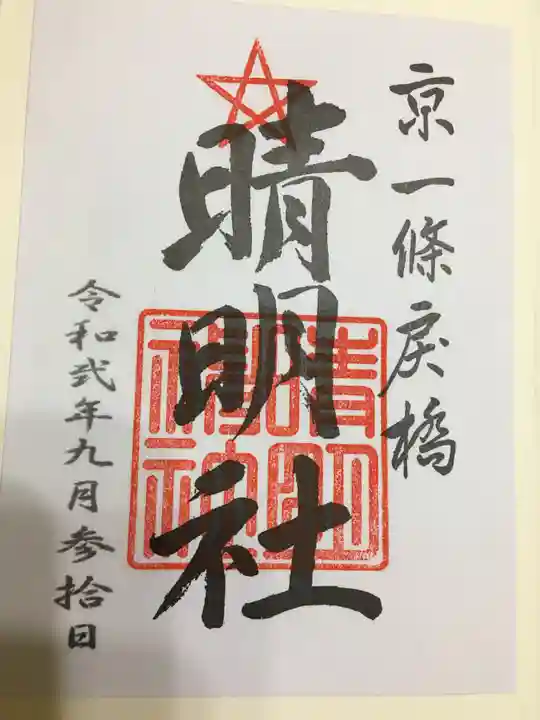 京一條戻橋
晴明社
晴明
神社
令和弐年九月参拾日